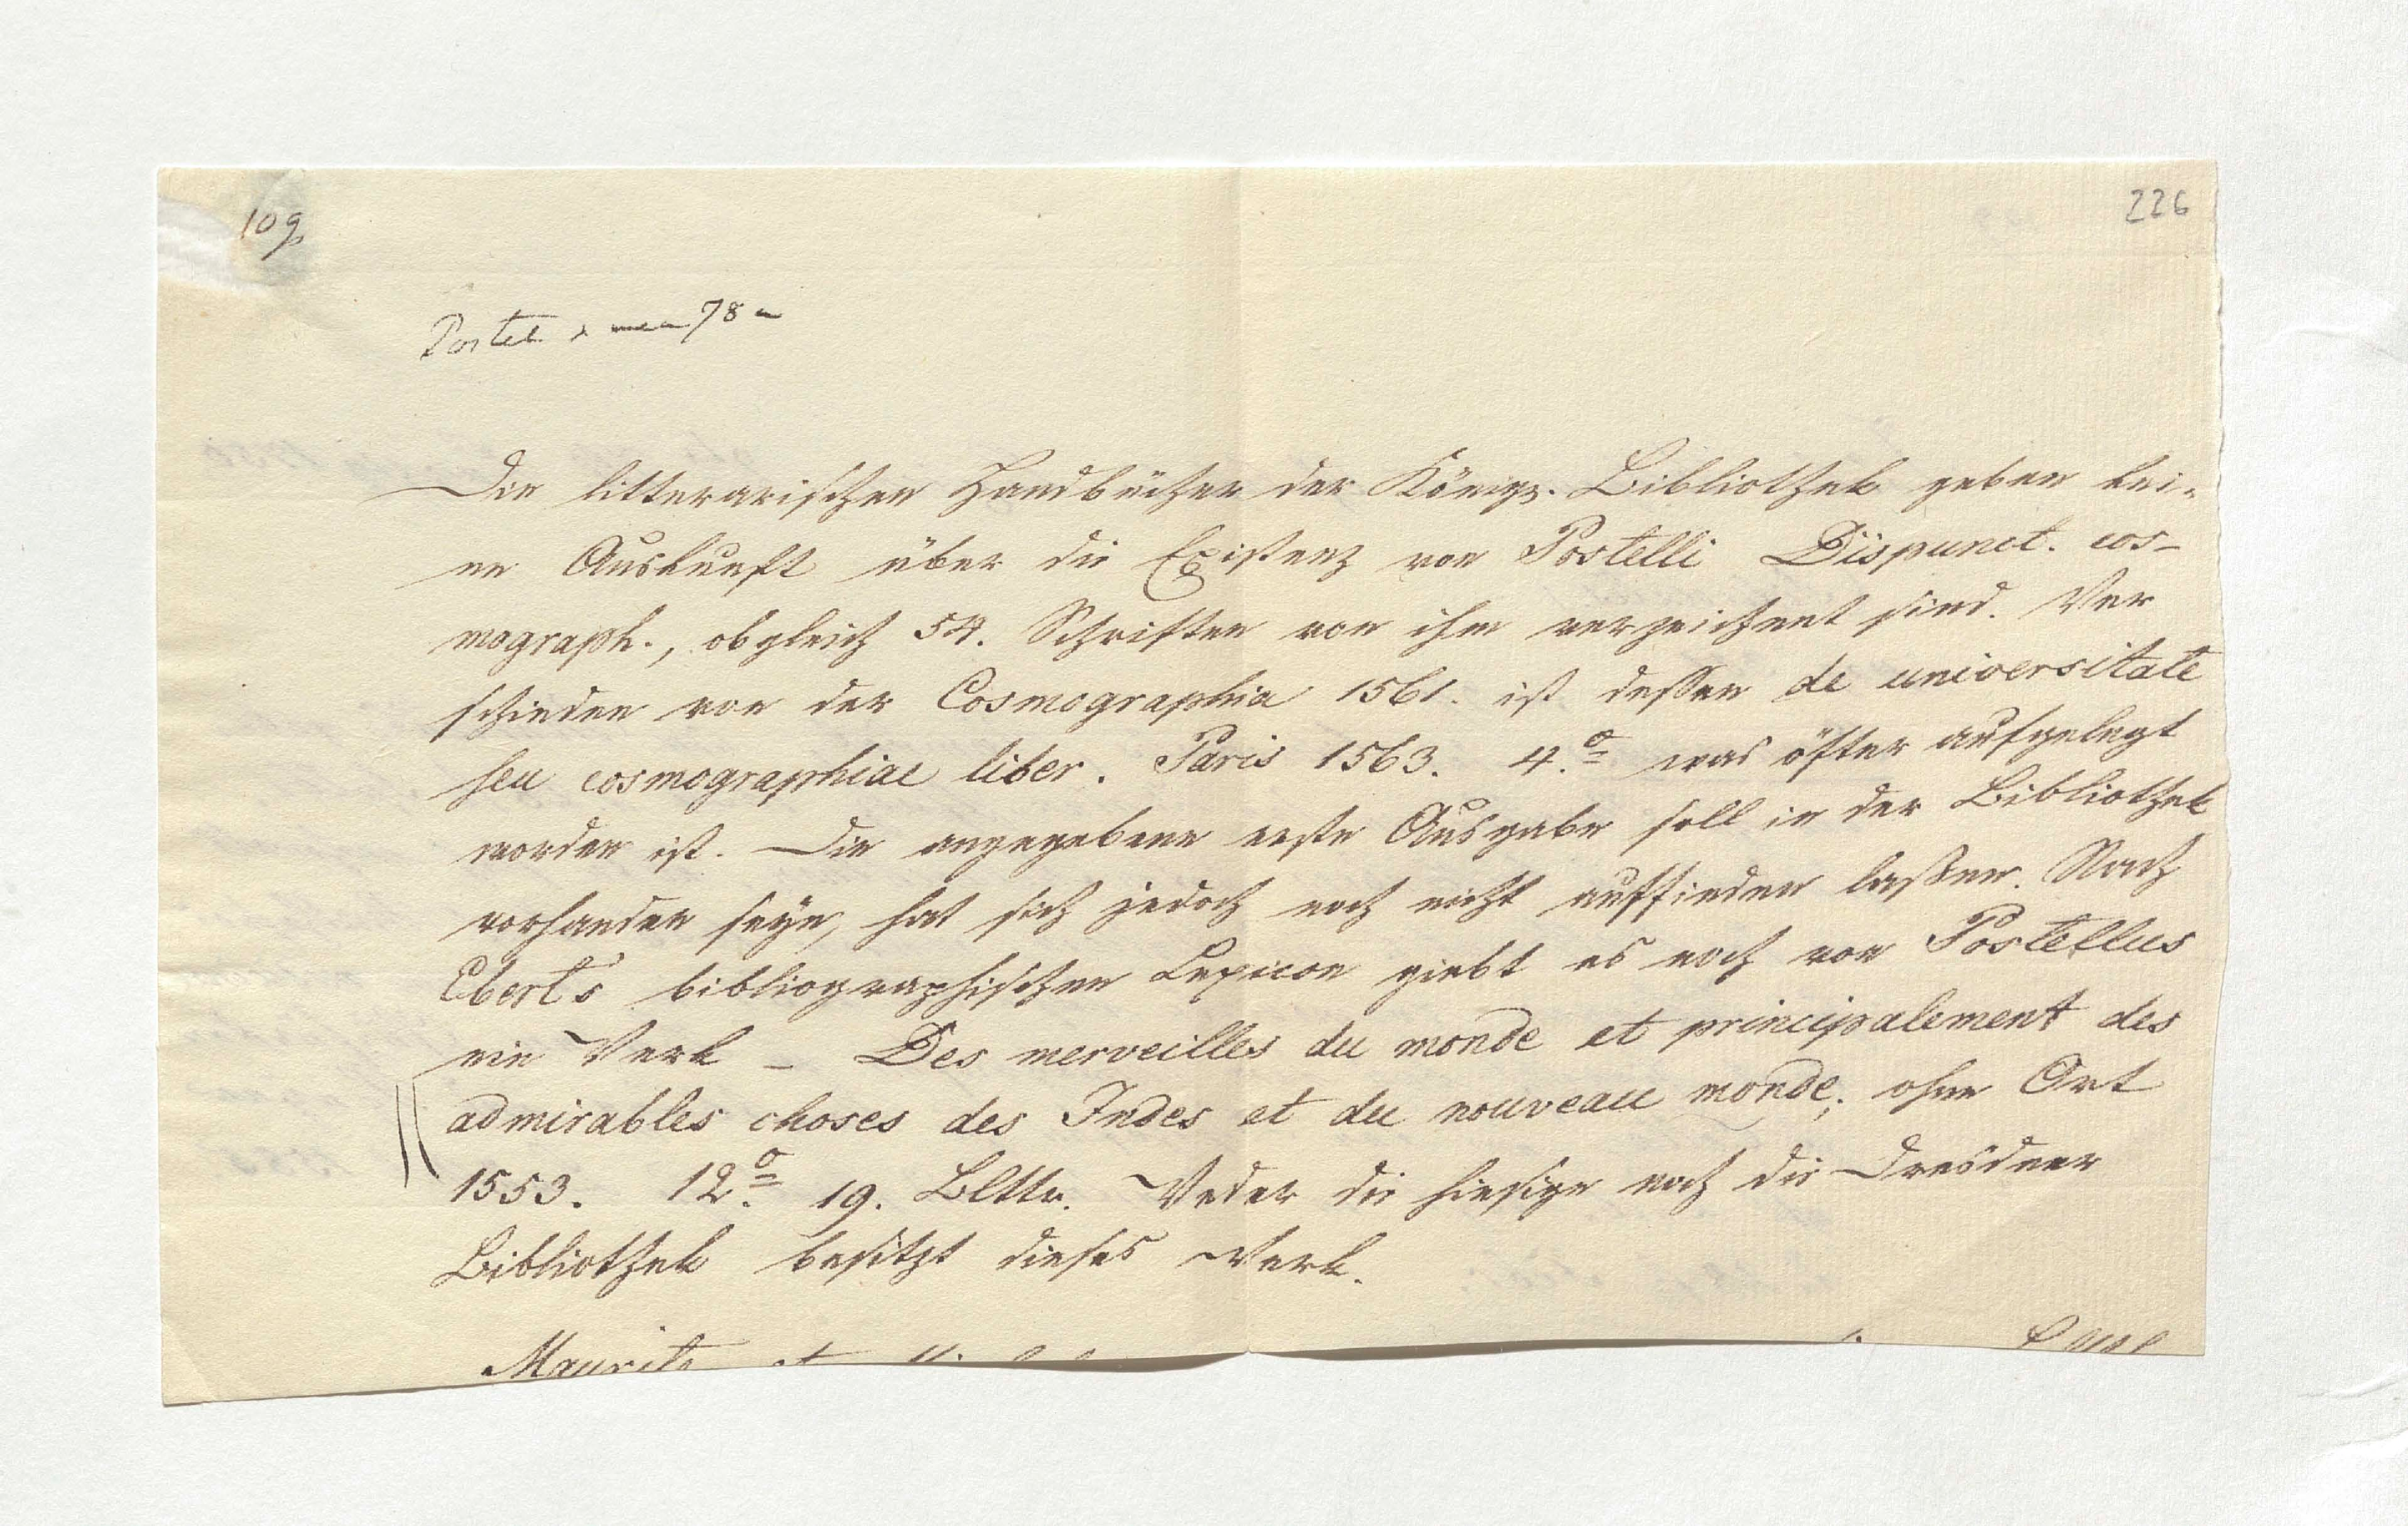 109
226
Postel 78
Die litterarischen Handbücher der Königr. Bibliothek geben kei-
ne Auskunft über die Existenz von Postelli Dispunct. cos-
mograph., obgleich 54. Schriften von ihm verzeichnet sind. Ver
schieden von der Cosmographia 1561. ist dessen de universitate
seu cosmographiae liber. Paris 1563. 4.º was öfter aufgelegt
worden ist. Die angegebene erste Ausgabe soll in der Bibliothek
vorhanden seyn, hat sich jedoch noch nicht auffinden lassen. Nach
Ebert's bibliographischen Lexicon giebt es noch von Postellus
ein Werk – Des merveilles du monde et principalement des
admirables choses des Indes et du nouveau monde, ohne Ort
1553. 12.º 19. Bltte. Weder die hiesige noch die Dresdner
Bibliothek besitzt dieses Werk.